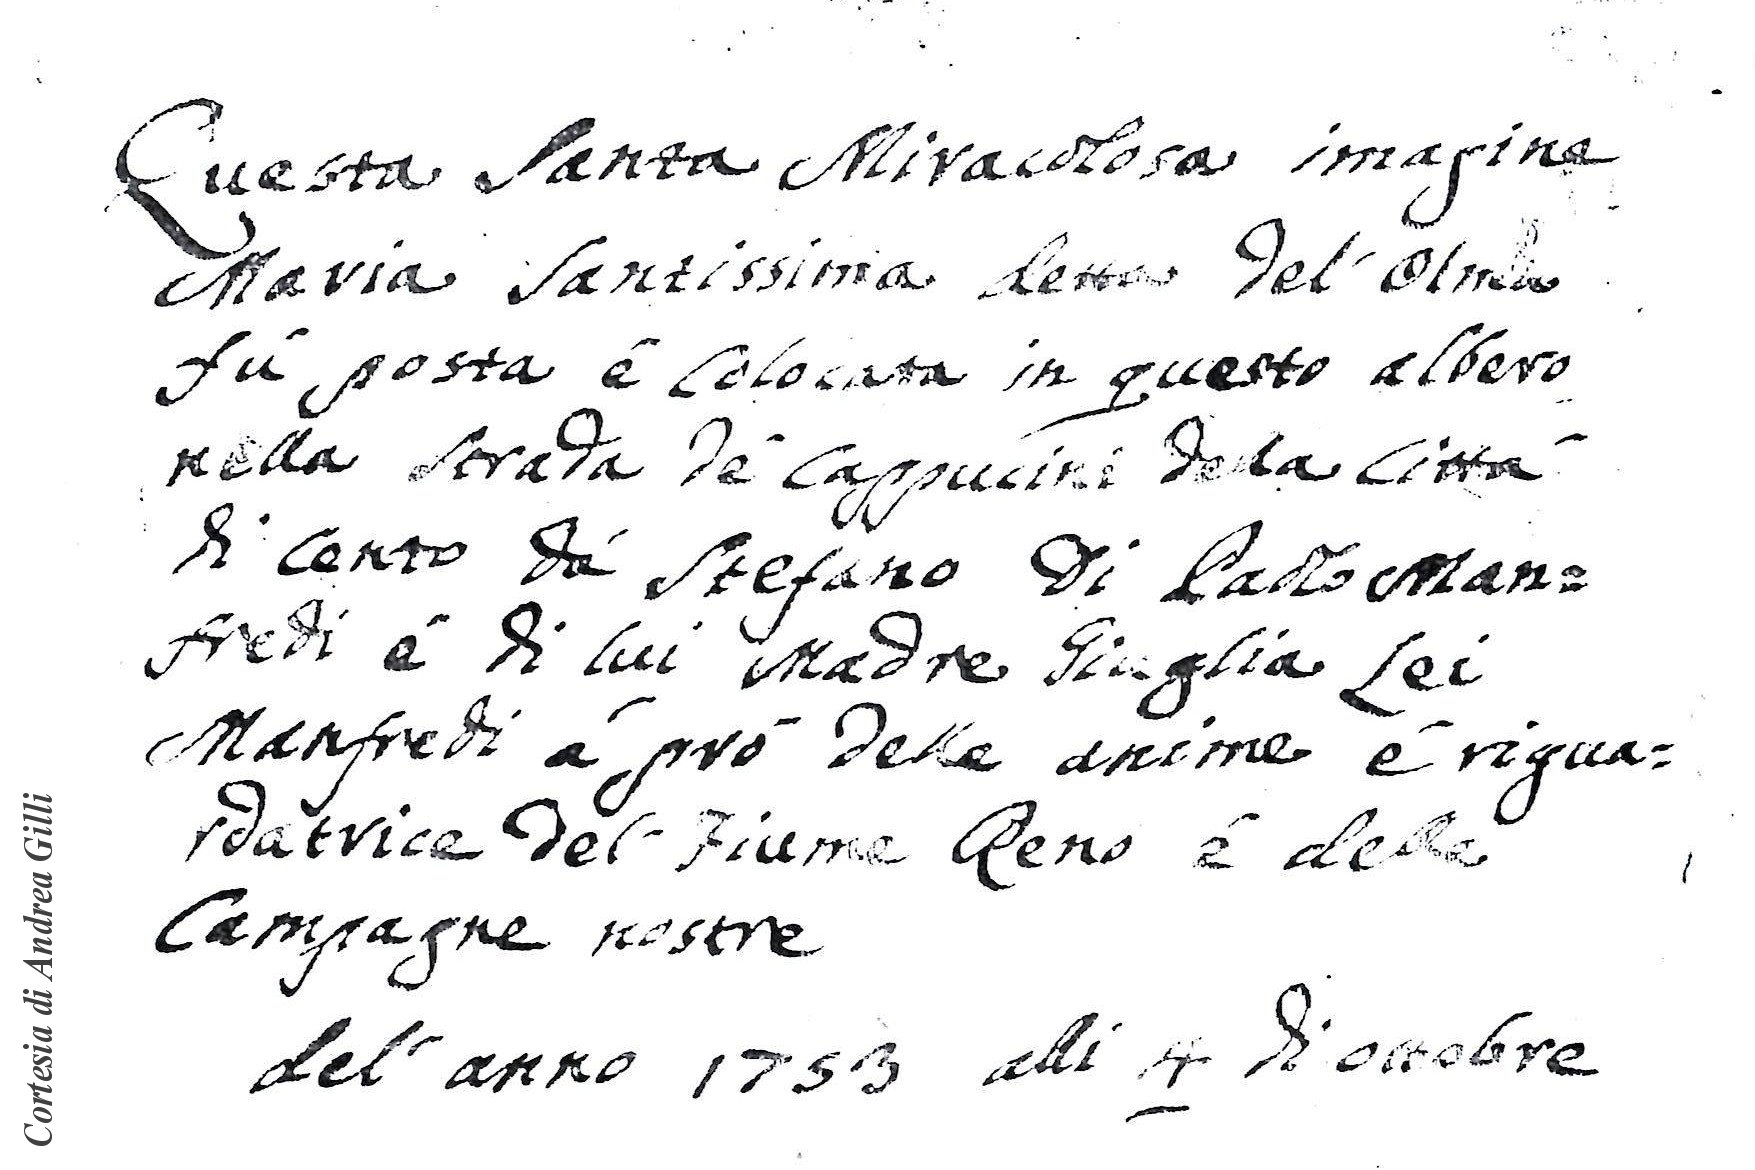 Questa Santa Miracolosa imagine
Maria Santissima detta del' Olmo
fú posta é Colocata in questo albero
nella Strada dé Cappucini della Cittá
di Cento dá Stefano Di Paolo Man=
fredi é di lui Madre Giuglia Lei
Manfredi á pró delle anime é rigua=
rdatrice del' Fiume Reno é delle
Campagne nostre
del' anno 1753 alli 4 di ottobre
Cortesia di Andrea Gilli